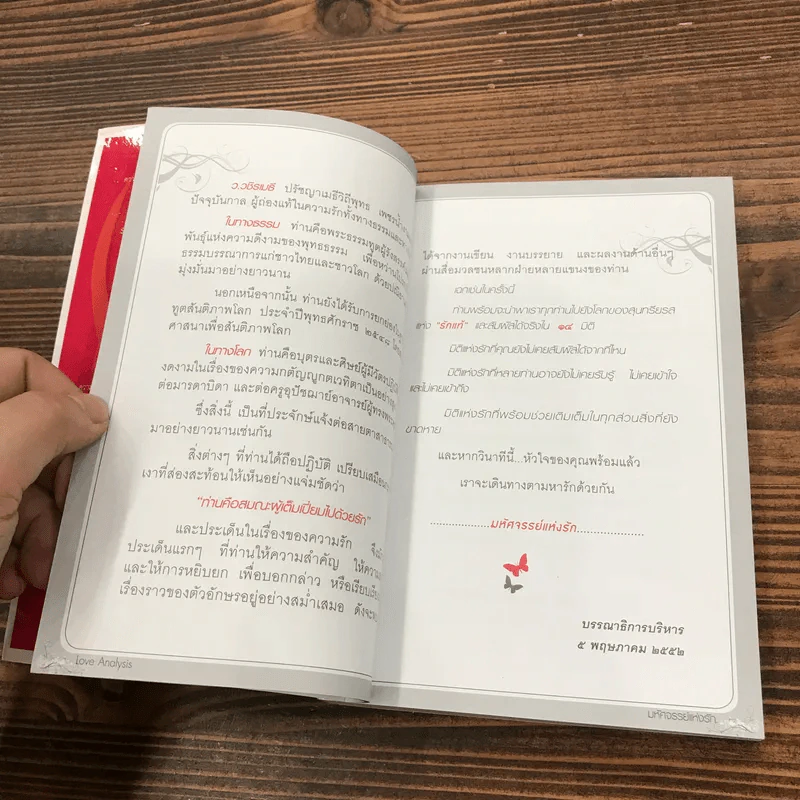 ว.วชิรเมธี ปรัชญาเมธีวิถีพุทธ
ปัจจุบันกาล ผู้ถ่องแท้ในความรักทั้งทางธรรมและ
ในทางธรรม ท่านคือพระธรรมทูตผู้
พันธุ์แห่งความดีงามของพุทธธรรม เพื่อหว่าน
ธรรมบรรณาการแก่ชาวไทยและชาวโลก ด้วย
มุ่งมั่นมาอย่างยาวนาน
นอกเหนือจากนั้น ท่านยังได้รับการยกย่อง
ทูตสันติภาพโลก ประจำปีพุทธศักราช ๒๕๔๘
ศาสนาเพื่อสันติภาพโลก
ในทางโลก ท่านคือบุตรและศิษย์ผู้มีวัตรปฏิบัติ
งดงามในเรื่องของความกตัญญูกตเวทิตาเป็นอย่าง
ต่อมารดาบิดา และต่อครูอุปัชฌาย์อาจารย์ผู้ทรง
ซึ่งสิ่งนี้ เป็นที่ประจักษ์แจ้งต่อสายตา
มาอย่างยาวนานเช่นกัน
สิ่งต่างๆ ที่ท่านได้ถือปฏิบัติ เปรียบเสมือน
เงาที่ส่องสะท้อนให้เห็นอย่างแจ่มชัดว่า
"ท่านคือสมณะผู้เต็มเปี่ยมไปด้วยรัก"
และประเด็นในเรื่องของความรัก
ประเด็นแรกๆ ที่ท่านให้ความสำคัญ
และให้การหยิบยก เพื่อบอกกล่าว
เรื่องราวของตัวอักษรอยู่อย่างสม่ำเสมอ
Love Analysis
ได้จากงานเขียน งานบรรยาย และผลงานด้านอื่นๆ
ผ่านสื่อมวลชนหลากฝ่ายหลายแขนงของท่าน
เฉกเช่นในครั้งนี้
ท่านพร้อมจะนำพาเราทุกท่านไปยังโลกของสุนทรียรส
แห่ง "รักแท้" และสัมผัสได้จริงใน ๑๔ มิติ
มิติแห่งรักที่คุณยังไม่เคยสัมผัสได้จากที่ไหน
มิติแห่งรักที่หลายท่านอาจยังไม่เคยรับรู้ ไม่เคยเข้าใจ
และไม่เคยเข้าถึง
มิติแห่งรักที่พร้อมช่วยเติมเต็มในทุกส่วนสิ่งที่ยัง
ขาดหาย
และหากวินาทีนี้...หัวใจของคุณพร้อมแล้ว
เราจะเดินทางตามหารักด้วยกัน
................มหัศจรรย์แห่งรัก..................
บรรณาธิการบริหาร
๕ พฤษภาคม ๒๕๕๒
มหัศจรรย์แห่งรัก